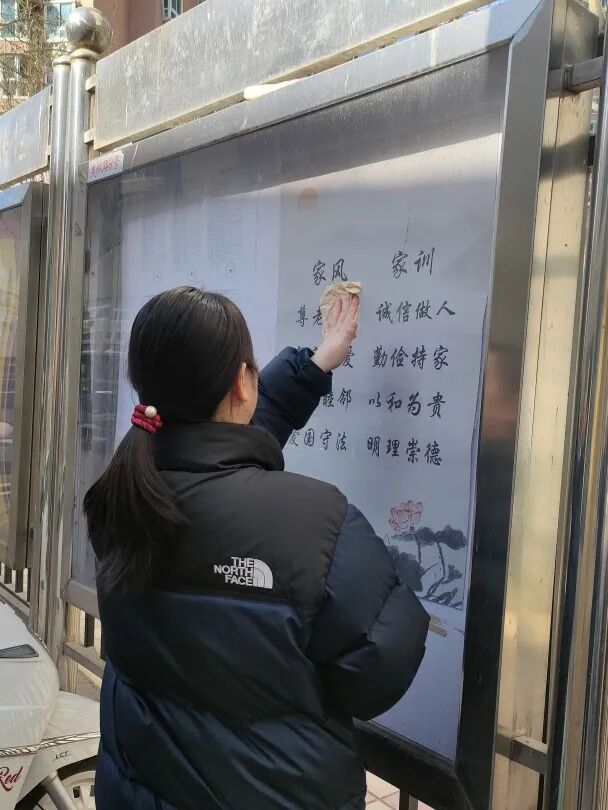 家风 家训
尊老 诚信做人
爱 勤俭持家
睦邻 以和为贵
爱国守法 明理崇德
THE
NORTH
FACE
Red